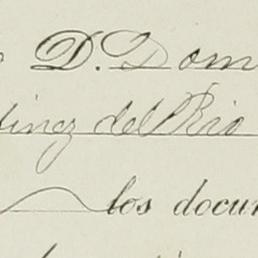 D. Dom
tinez del Rio
los docu